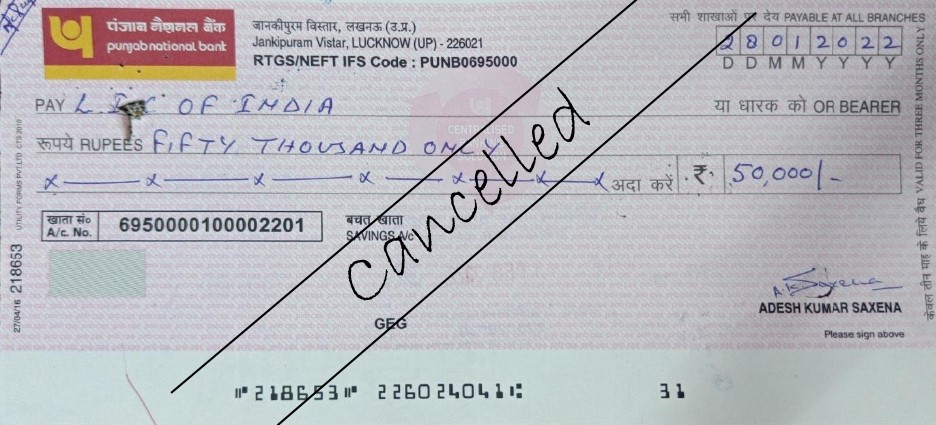 पंजाब नैशनल बैंक
punjab national bank
जानकीपुरम विस्तार, लखनऊ (उ.प्र.)
Jankipuram Vistar, LUCKNOW (UP) - 226021
RTGS/NEFT IFS Code : PUNB0695000
सभी शाखाओं पर देय PAYABLE AT ALL BRANCHES
28012022
D D M M Y Y Y Y
PAY LIC OF INDIA या धारक को OR BEARER
रूपये RUPEES FIFTY THOUSAND ONLY
अदा करें ₹ 50,000/-
खाता सं० A/c. No. 6950000100002201
बचत खाता
SAVINGS A/c
cancelled
GEG
A.K Saxena
ADESH KUMAR SAXENA
Please sign above
27/04/16 218653
UTILITY FORMS PVT.LTD CTS 2010
केवल तीन माह के लिये वैध VALID FOR THREE MONTHS ONLY
⑈218653⑈ 226024041⑆ 31